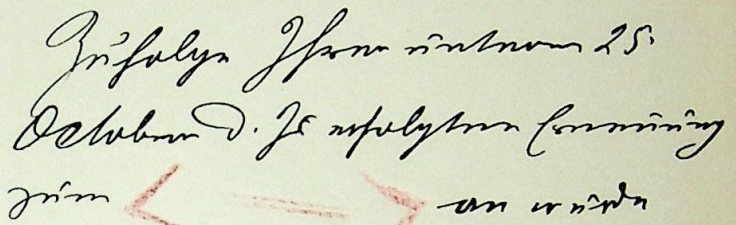 Zufolge Ihrer unterm 25.
October d. Js erfolgten Ernennung
zum an wurde